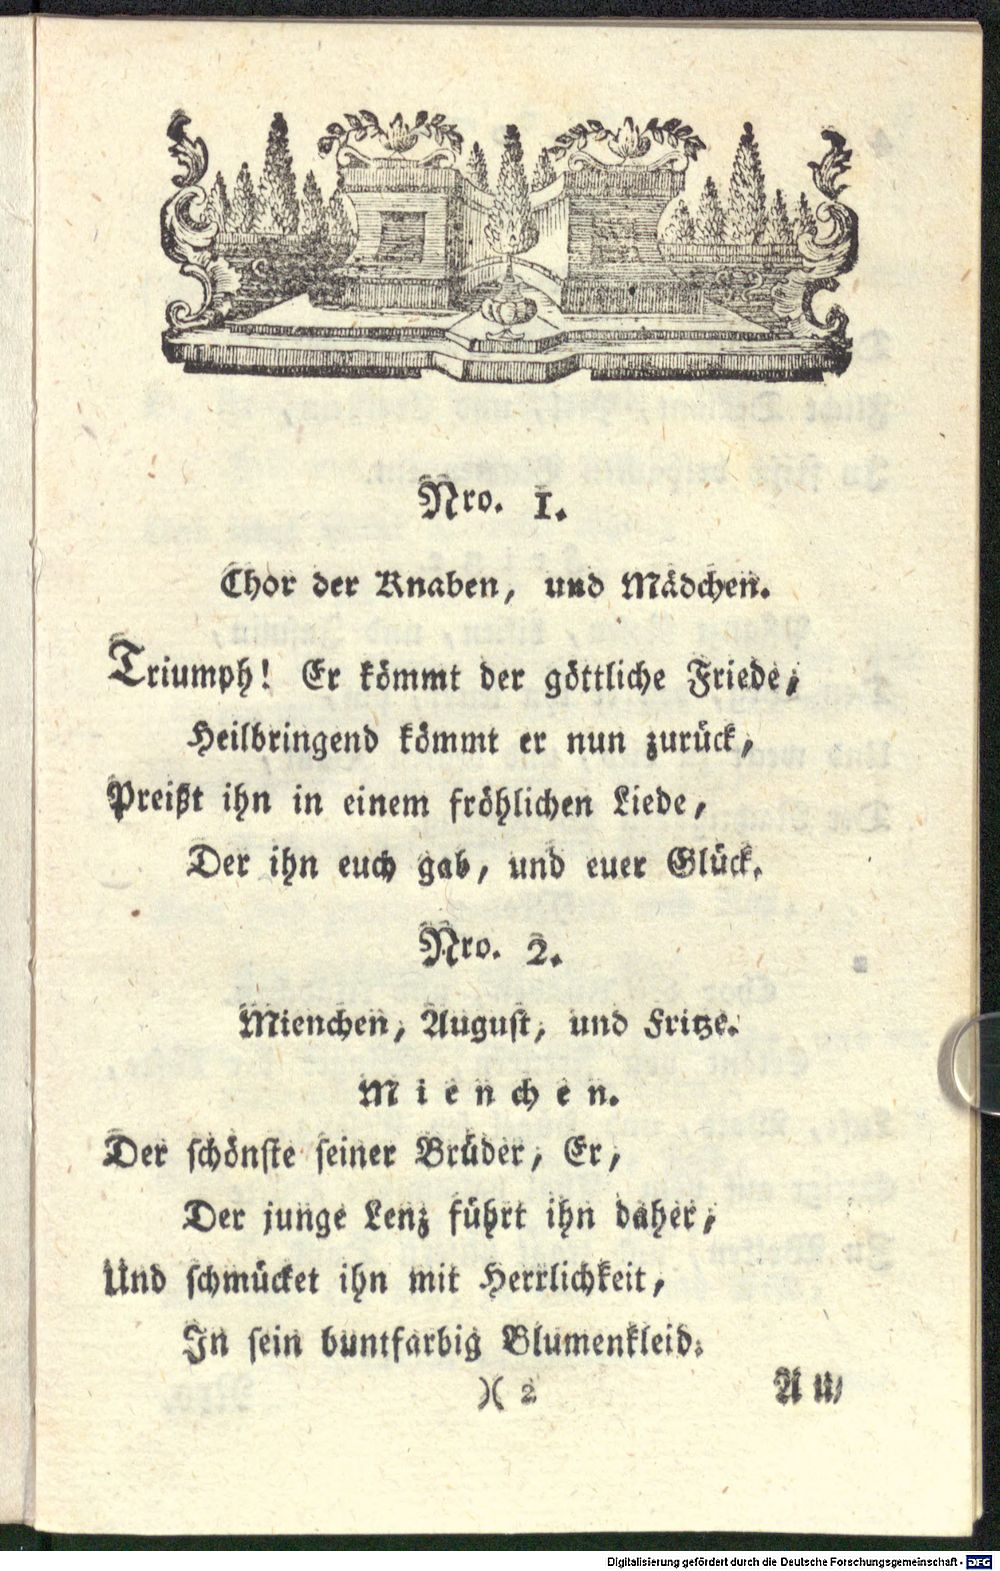 Nro. 1.
Chor der Knaben, und Mädchen.
Triumph! Er kömmt der göttliche Friede,
Heilbringend kömmt er nun zurück,
Preißt ihn in einem fröhlichen Liede,
Der ihn euch gab, und euer Glück.
Nro. 2.
Mienchen, August, und Fritze.
Mienchen.
Der schönste seiner Brüder, Er,
Der junge Lenz führt ihn daher,
Und schmücket ihn mit Herrlichkeit,
In sein buntfarbig Blumenkleid.
)( 2 Au-
Digitalisierung gefördert durch die Deutsche Forschungsgemeinschaft - DFG